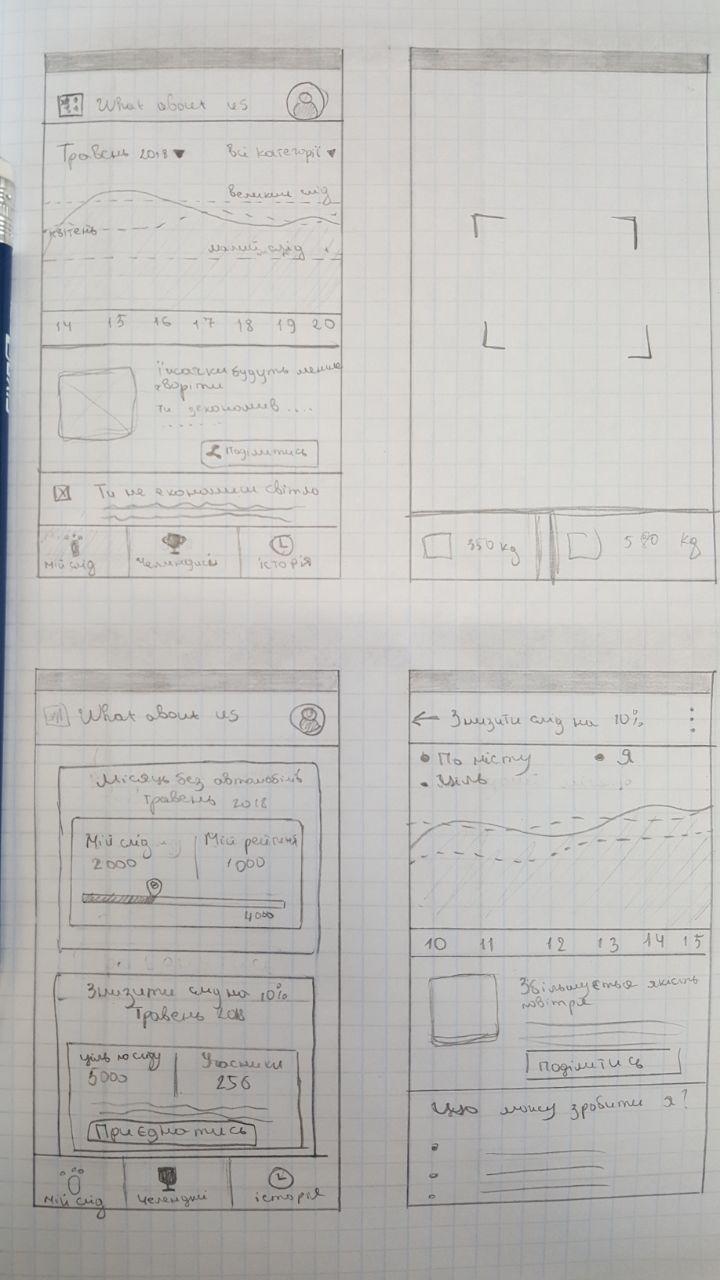 What about us
Травень 2018 ▼ всі категорії ▼
великий слід
квітень
малий слід
14 15 16 17 18 19 20
будуть менше
хворіти
ти зекономив ....
Поділитись
Ти не економиш світло
Мій слід Челенджі історія
350 kg 580 kg
What about us
Місяць без автомобілів
травень 2018
Мій слід Мій рейтинг
2000 1000
4000
Знизити слід на 10%
Травень 2018
Ціль по сліду Учасники
5000 256
Приєднатись
Мій слід Челенджі історія
← Знизити слід на 10%
По місту Я
Ціль
10 11 12 13 14 15
Збільшується якість
повітря
Поділитись
Що можу зробити я?